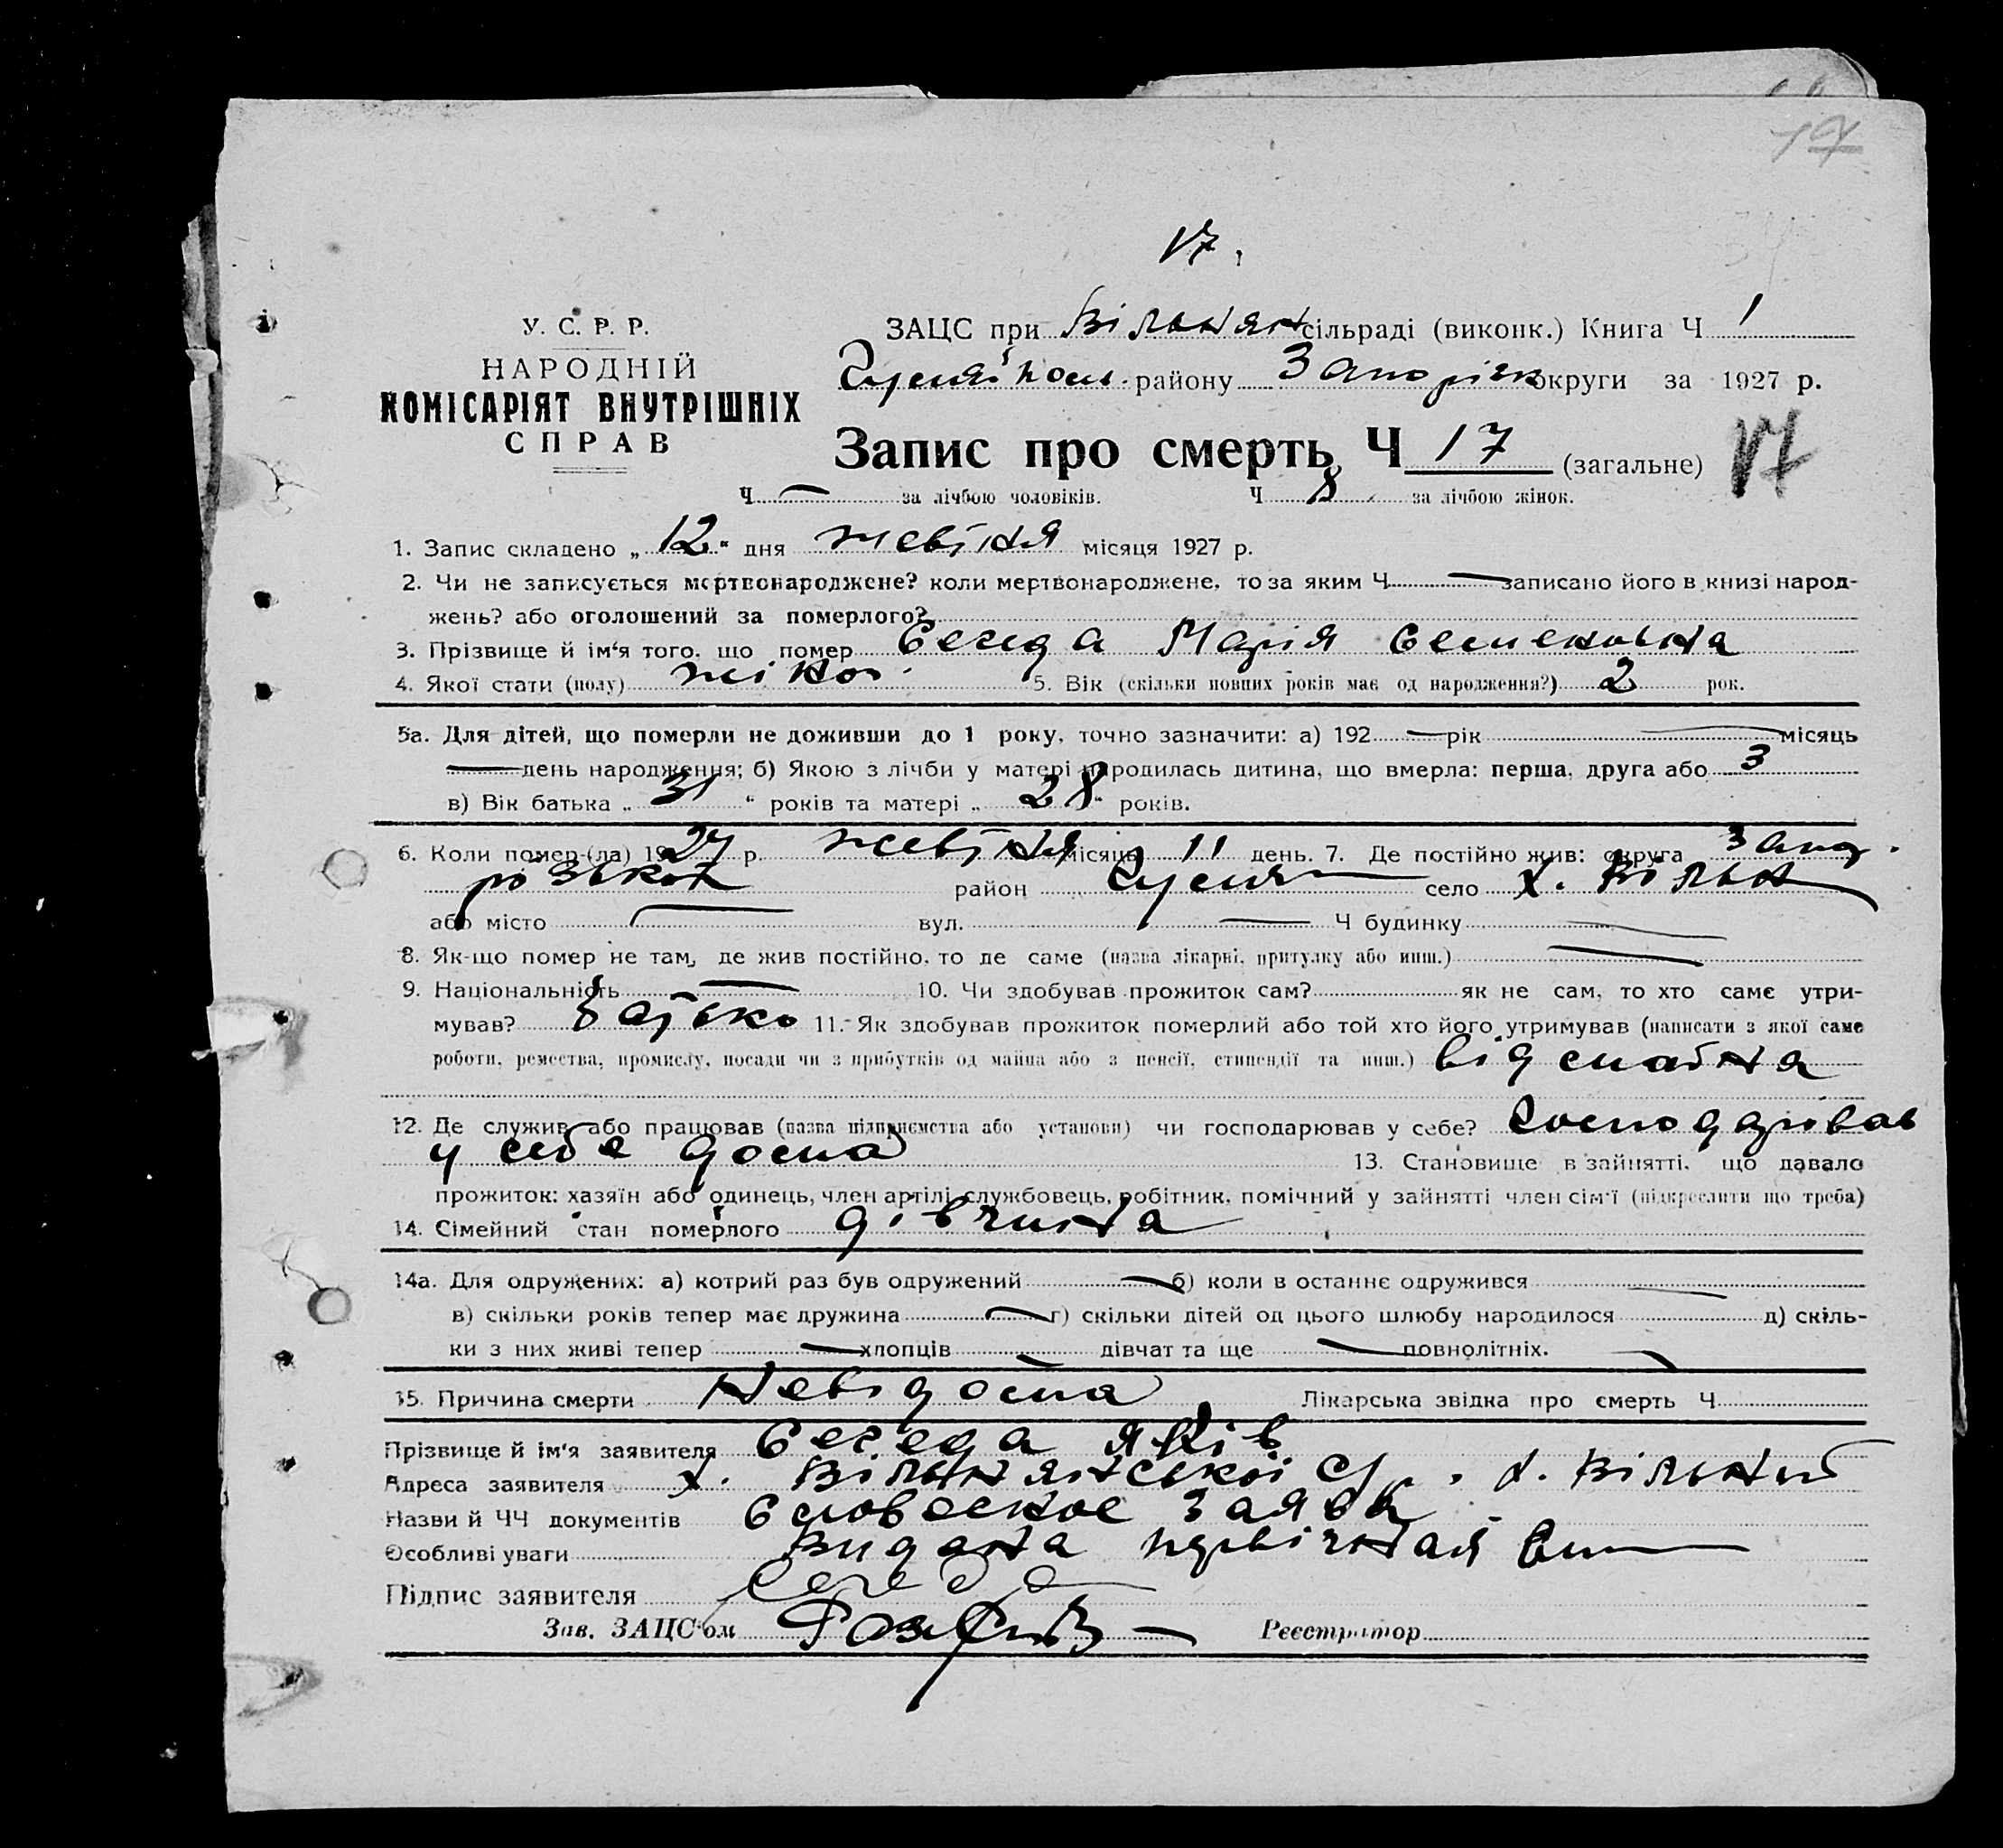 17
17.
У. С. Р. Р.
НАРОДНІЙ
КОМІСАРІЯТ ВНУТРІШНІХ
СПРАВ
ЗАЦС при Вільнян сільраді (виконк.) Книга Ч 1
Гуляйпол. району Запоріжж округи за 1927 р.
Запис про смерть Ч 17 (загальне) 17
Ч — за лічбою чоловіків. Ч 8 за лічбою жінок.
1. Запис складено „ 12 " дня жовтня місяця 1927 р.
2. Чи не записується мертвонароджене? коли мертвонароджене, то за яким Ч — записано його в книзі народ-
жень? або оголошений за померлого?
3. Прізвище й ім'я того, що помер Середа Марія Семеновна
4. Якої стати (полу) жіноч. 5. Вік (скільки повних років має од народження?) 2 рок.
5а. Для дітей, що померли не доживши до 1 року, точно зазначити: а) 192 — рік — місяць
— день народження; б) Якою з лічби у матері народилась дитина, що вмерла: перша, друга або 3
в) Вік батька „ 31 " років та матері „ 28 " років.
6. Коли помер-(ла) 1927 р. жовтня місяця 11 день. 7. Де постійно жив: округа Запо-
різької район Гуляй село х. Вільн
або місто — вул. — Ч будинку —
8. Як-що помер не там, де жив постійно, то де саме (назва лікарні, притулку або инш.) —
9. Національність — 10. Чи здобував прожиток сам? як не сам, то хто саме утри-
мував? батько 11. Як здобував прожиток померлий або той хто його утримував (написати з якої саме
роботи, ремества, промислу, посади чи з прибутків од майна або з пенсії, стипендії та инш.) від майна
12. Де служив або працював (назва підприємства або установи) чи господарював у себе? Господарював
у себе дома 13. Становище в зайнятті, що давало
прожиток: хазяїн або одинець, член артілі, службовець, робітник, помічний у зайнятті член сім'ї (підкреслити що треба)
14. Сімейний стан померлого дівчина
14а. Для одружених: а) котрий раз був одружений — б) коли в останнє одружився —
в) скільки років тепер має дружина — г) скільки дітей од цього шлюбу народилося д) скіль-
ки з них живі тепер — хлопців — дівчат та ще — повнолітніх.
15. Причина смерти Невідома Лікарська звідка про смерть Ч
Прізвище й ім'я заявителя Середа Яків
Адреса заявителя х. Вільнянської с/р. х. Вільний
Назви й ЧЧ документів словесное заява
Особливі уваги Видана первічная
Підпис заявителя Середа
Зав. ЗАЦС'ом Реєстратор